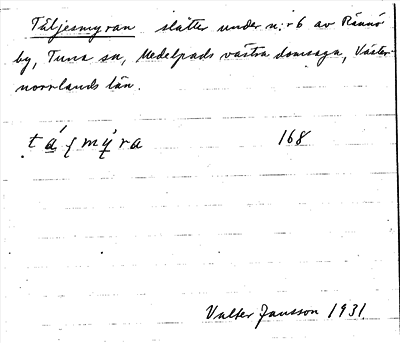 Täljesmyran slåtter under n:r 6 av Rännö
by, Tuna sn, Medelpads västra domsaga, Väster-
norrlands län.
168
Valter Jansson 1931